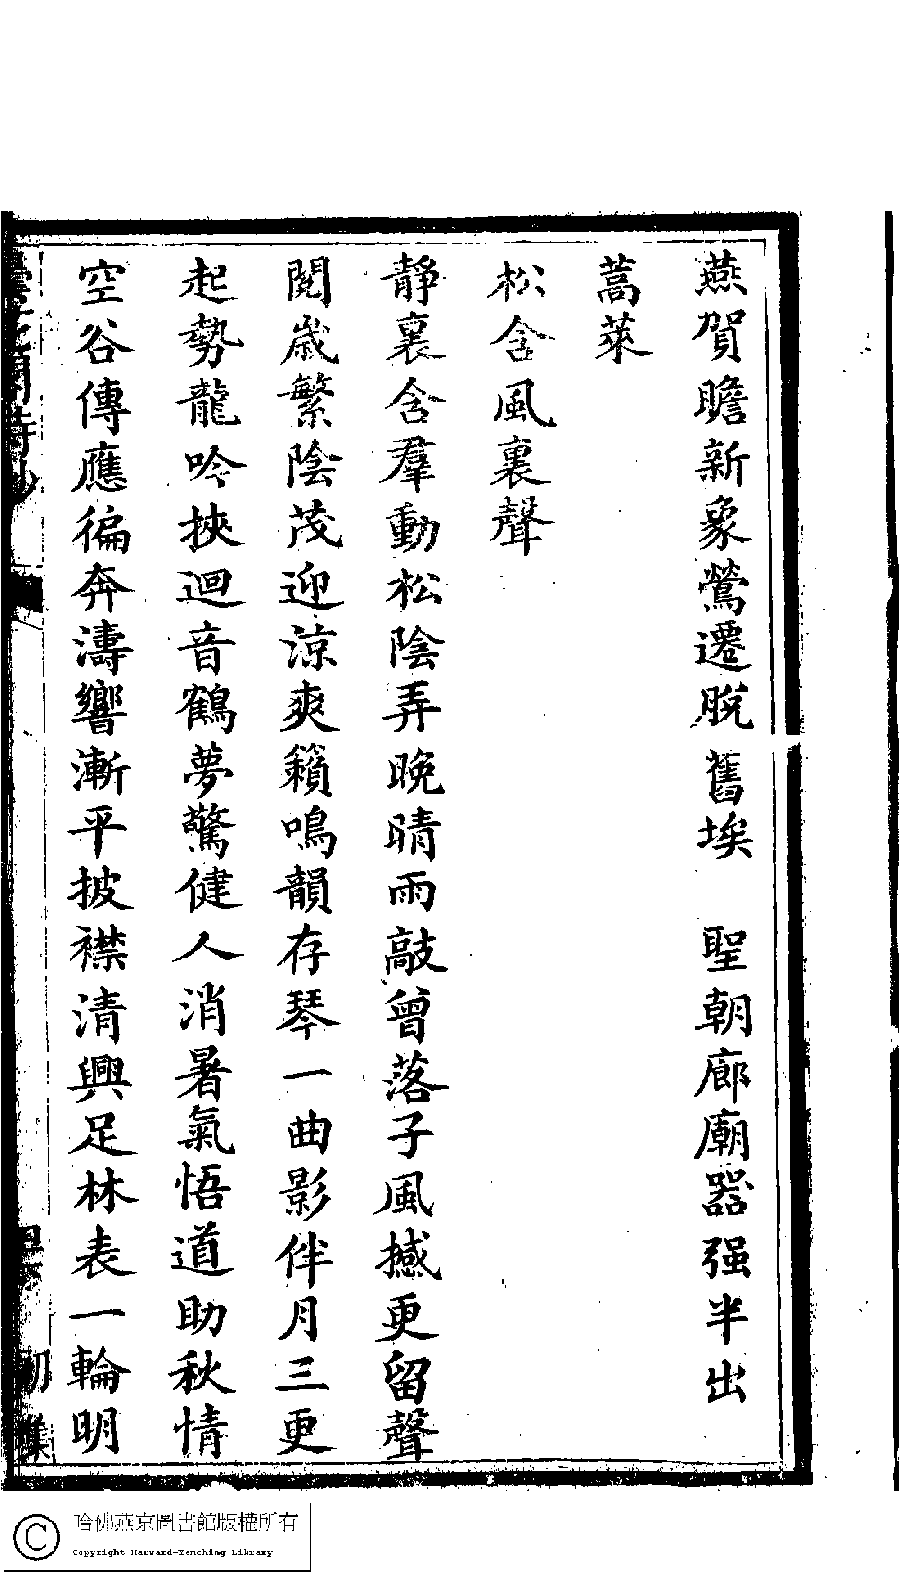 燕賀瞻新象鶯遷脫舊埃　聖朝廊廟器强半出
蒿萊
松含風裏聲
靜裏含羣動松陰弄晚晴雨敲曾落子風撼更留聲
閱歲繁陰茂迎涼爽籟鳴韻存琴一曲影伴月三更
起勢龍吟挾迴音鶴夢驚健人消暑氣悟道助秋情
空谷傳應徧奔濤響漸平披襟清興足林表一輪明
初集
哈佛燕京圖書館版權所有
Copyright Harvard-Yenching Library